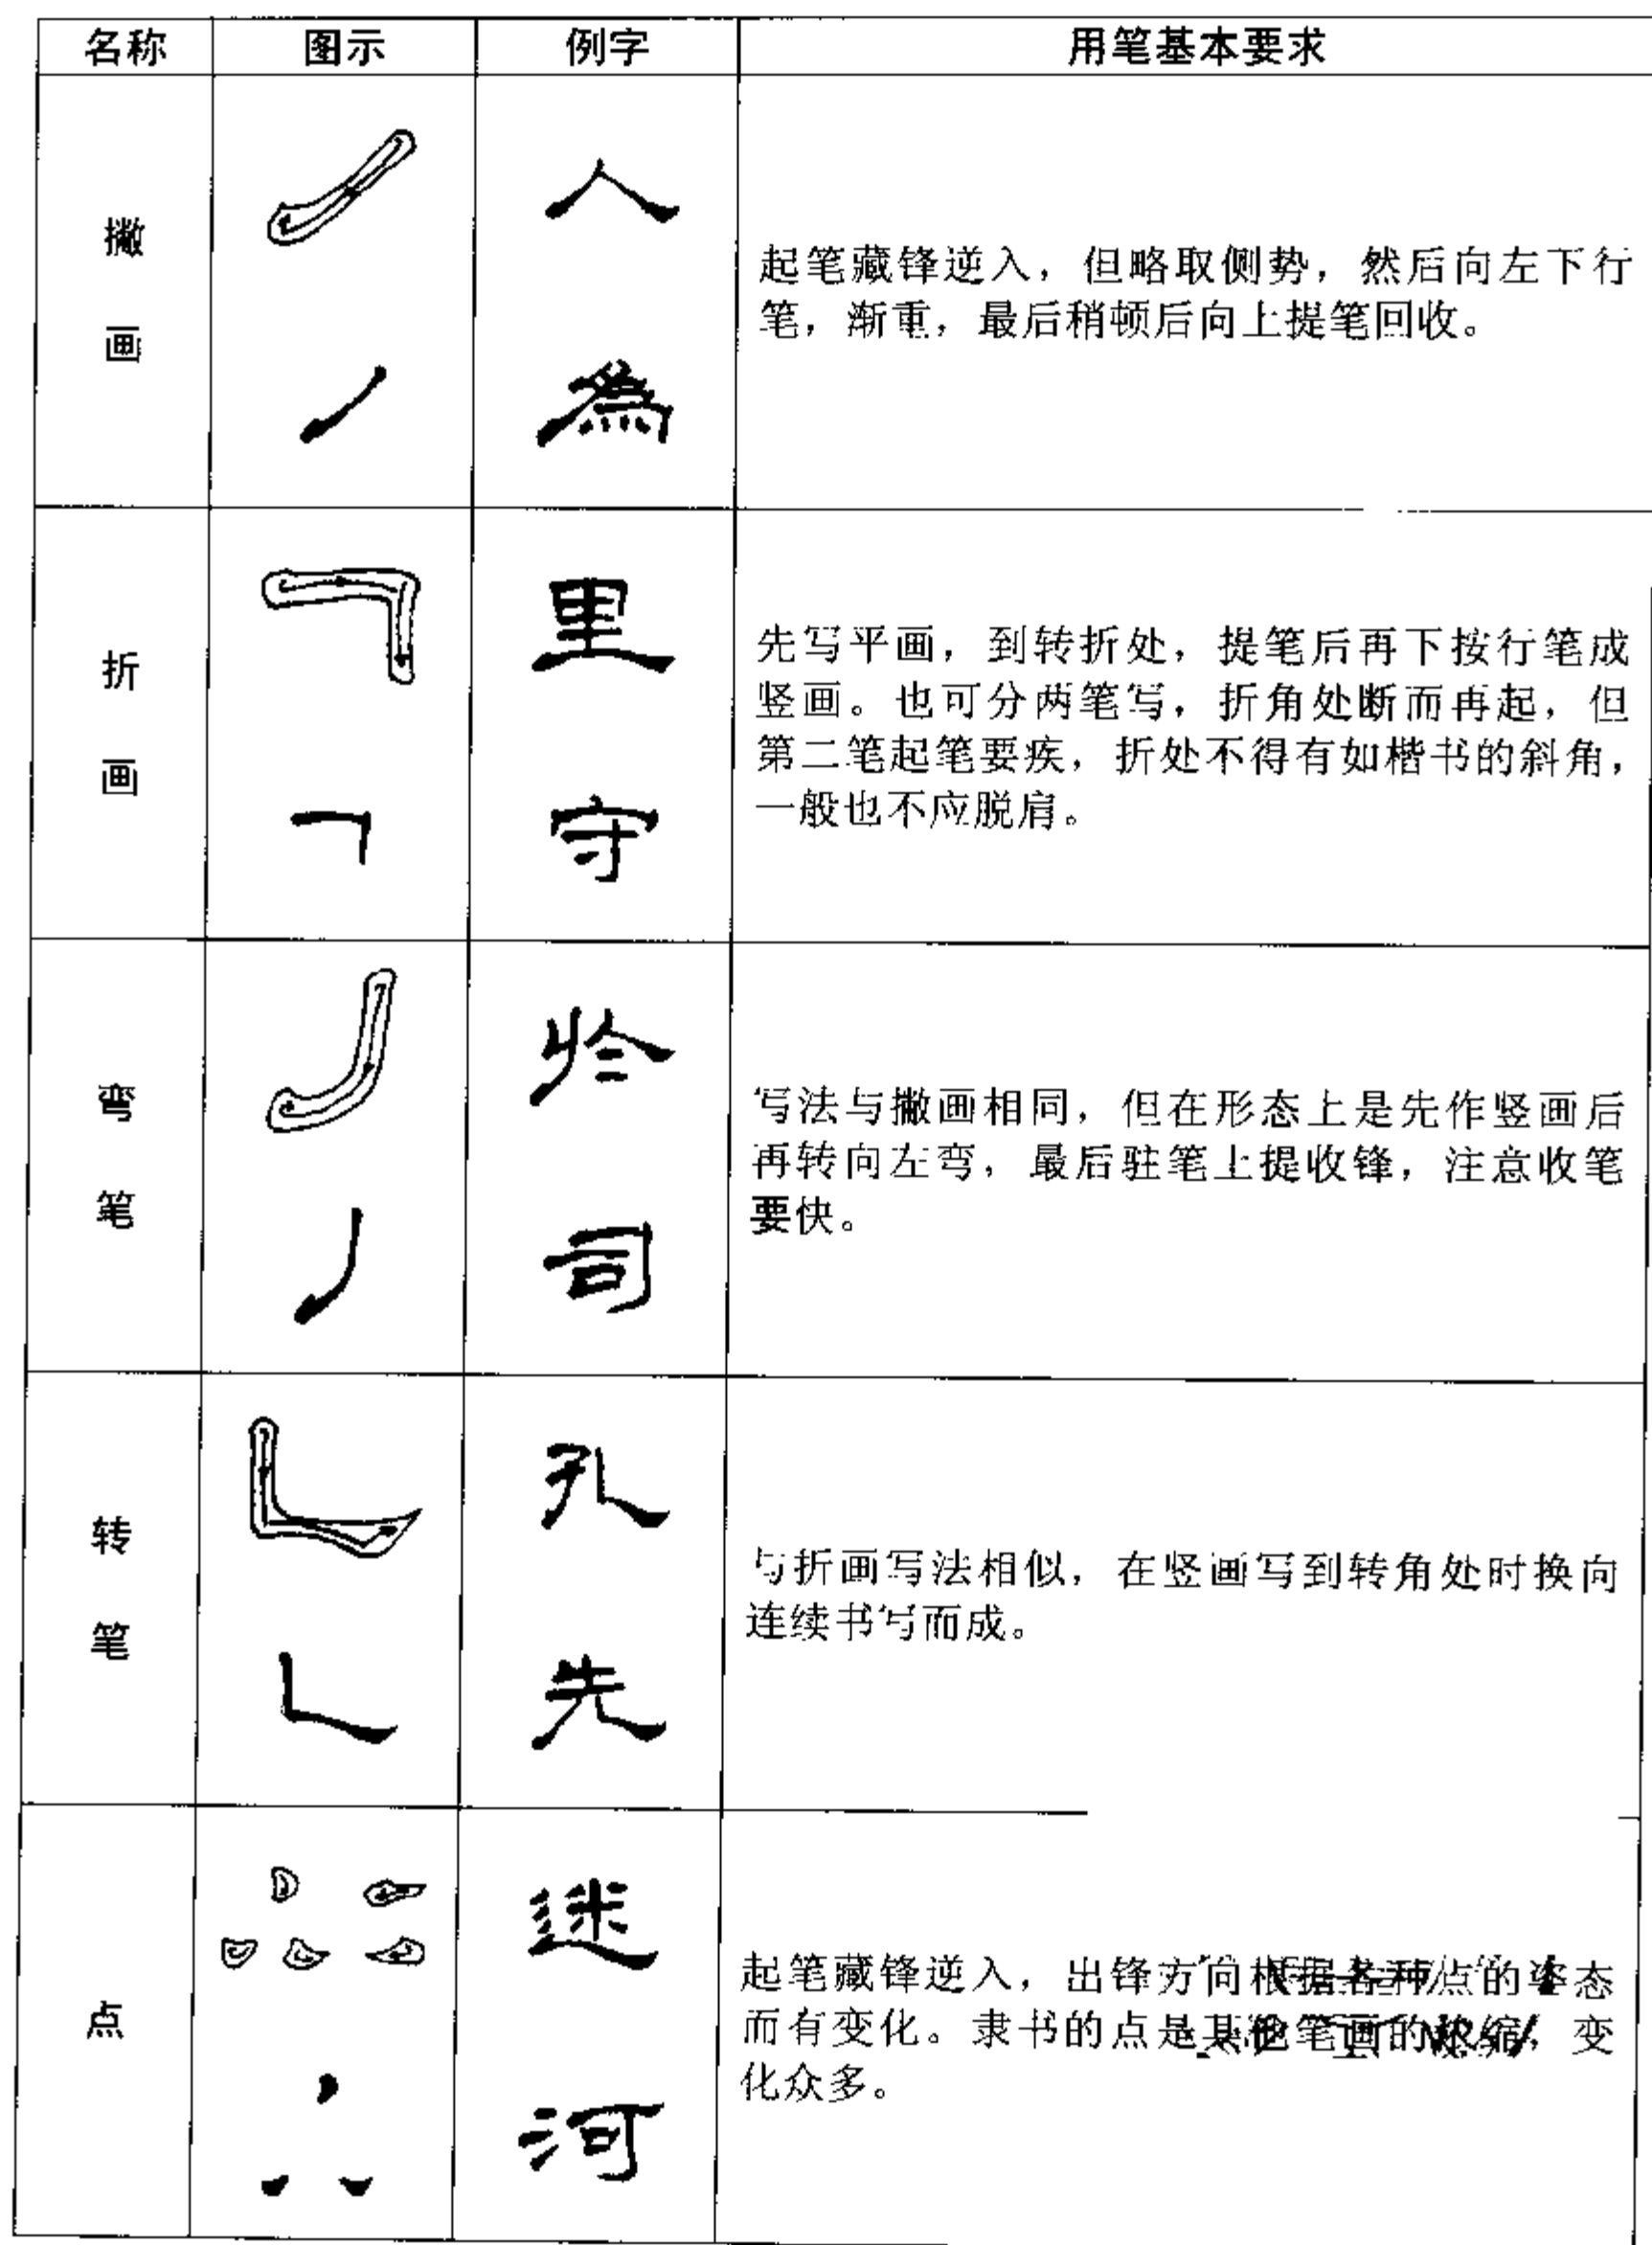 名称 图示 例字 用笔基本要求
撇画
人
為
起笔藏锋逆入，但略取侧势，然后向左下行
笔，渐重，最后稍顿后向上提笔回收。
折画
里
守
先写平画，到转折处，提笔后再下按行笔成
竖画。也可分两笔写，折角处断而再起，但
第二笔起笔要疾，折处不得有如楷书的斜角，
一般也不应脱肩。
弯笔
司
写法与撇画相同，但在形态上是先作竖画后
再转向左弯，最后驻笔上提收锋，注意收笔
要快。
转笔
孔
先
与折画写法相似，在竖画写到转角处时换向
连续书写而成。
点
迷
河
起笔藏锋逆入，出锋方向根据各种点的姿态
而有变化。隶书的点是其他笔画的浓缩，变
化众多。